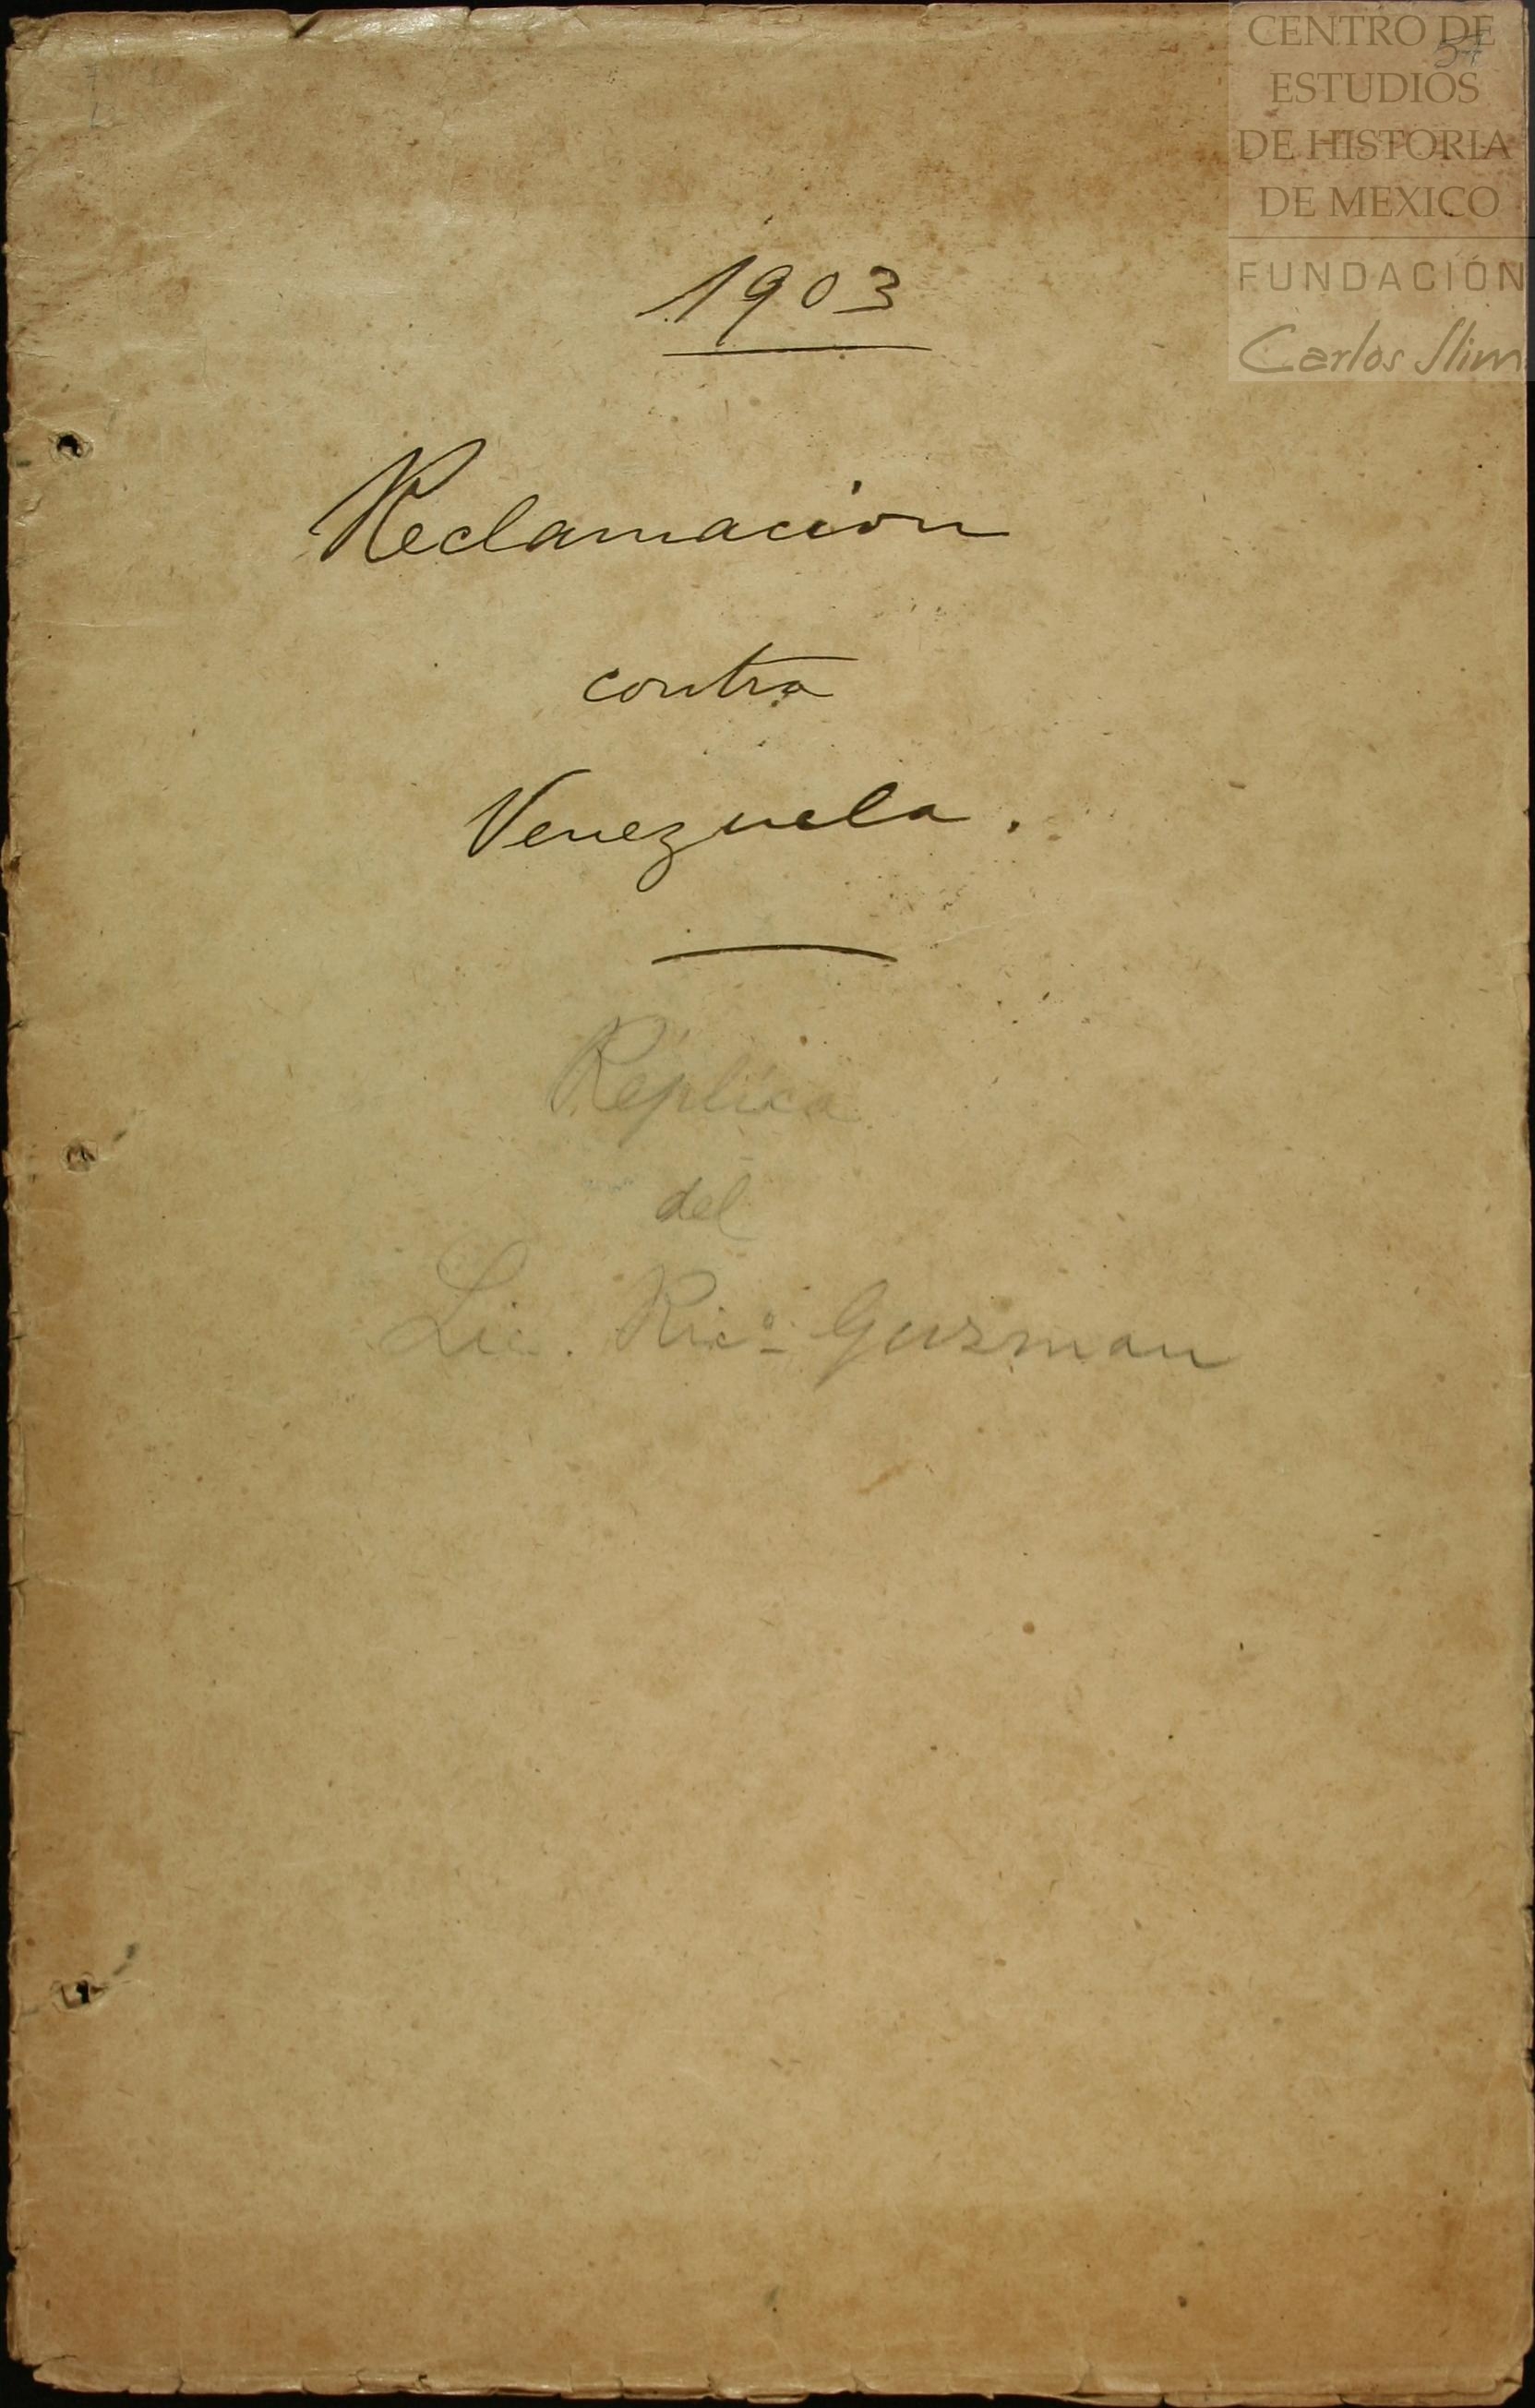 CENTRO DE
57
ESTUDIOS
DE HISTORIA
DE MEXICO
FUNDACIÓN
Carlos Slim
1903
Reclamación
contra
Venezuela.
Réplica
del
Lic. Ricº Guzman